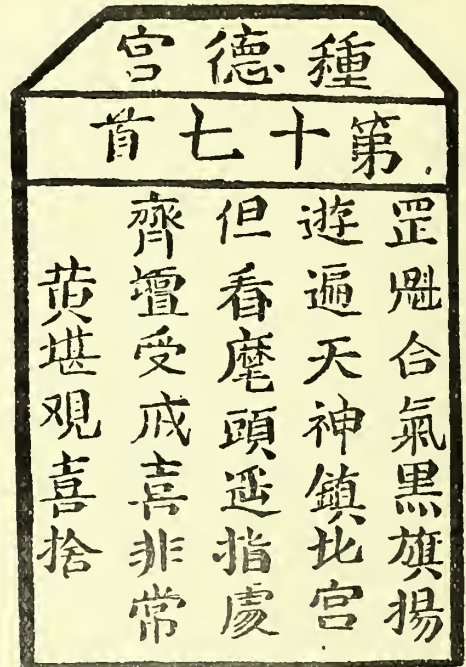 種德宮
第十七首
罡魁合氣黑旗揚
遊遍天神鎮北宮
但看麾頭遥指處
齊壇受戒喜非常
黄堪观喜捨